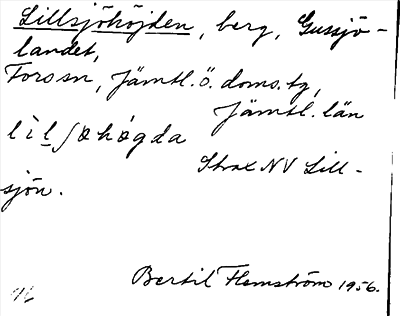 Lillsjöhöjden, berg, Gussjö-
landet,
Fors sn, Jämtl. ö. doms. tg,
Jämtl. län
lìlʃøhøgda
Strax NV Lill-
sjön.
Bertil Flemström 1956.